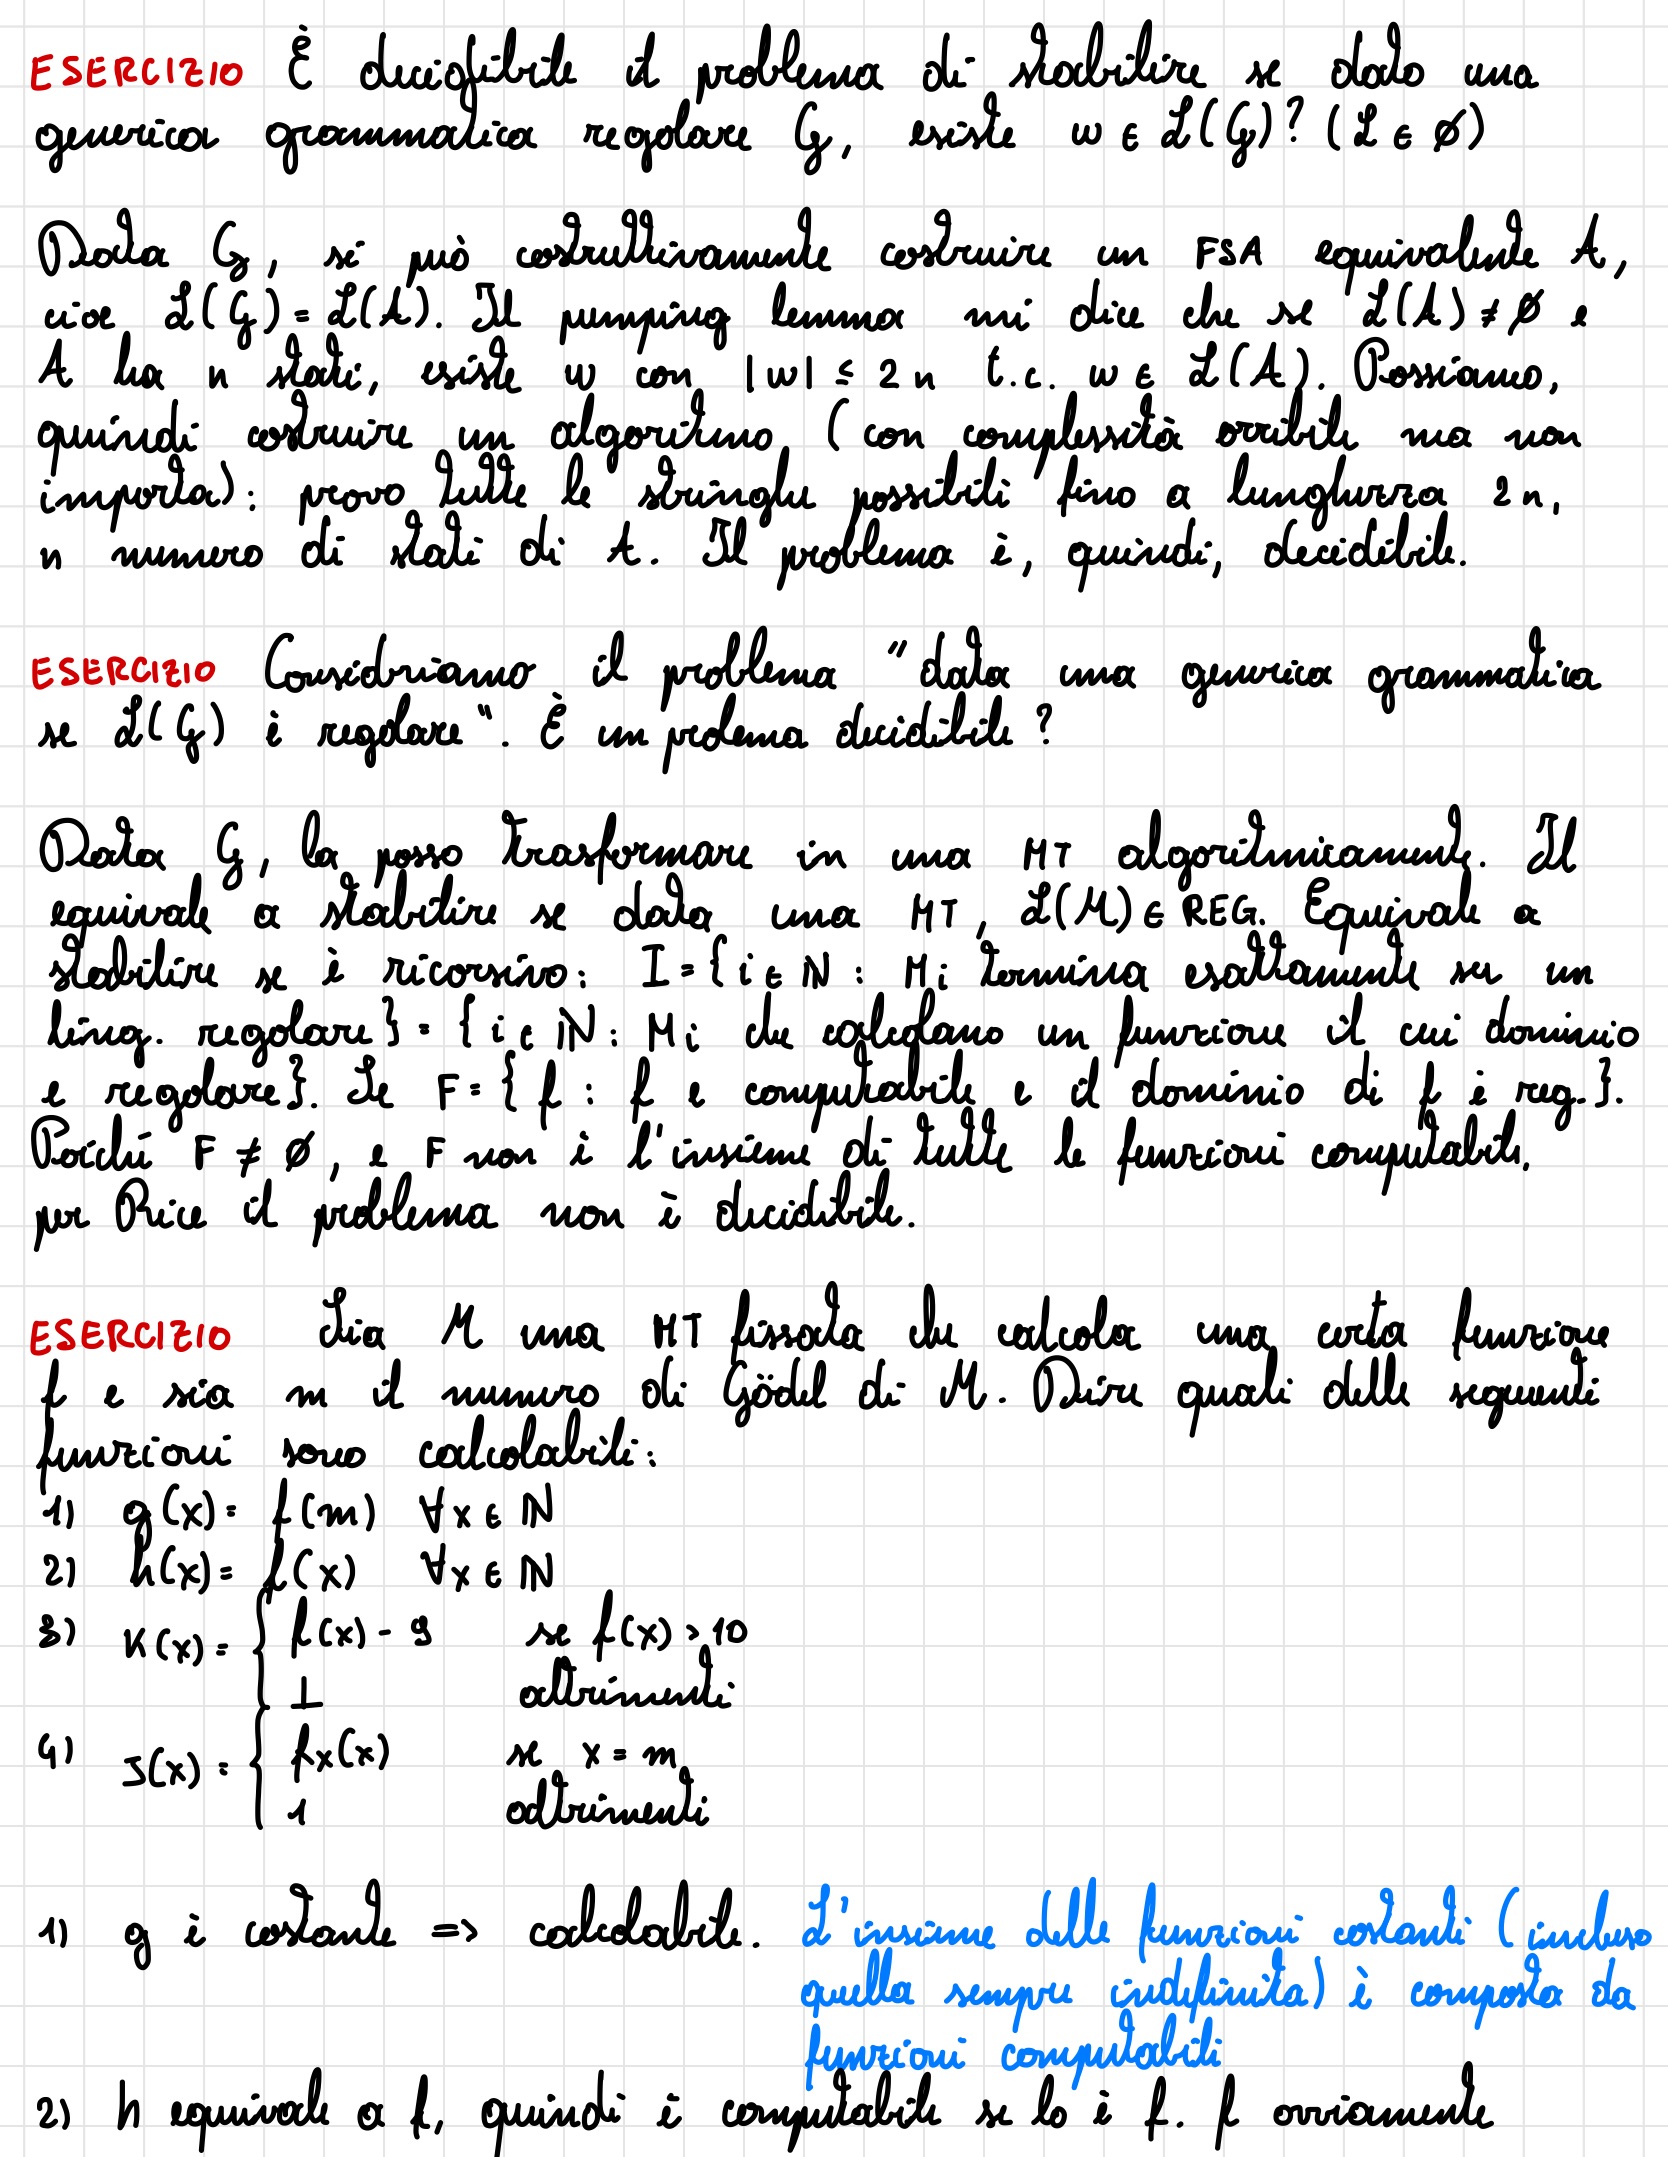 ESERCIZIO È decidibile il problema di stabilire se dato una
generica grammatica regolare G, esiste w ∈ L(G)? (L ∈ ∅)
Data G, si può costruttivamente costruire un FSA equivalente A,
cioe L(G) = L(A). Il pumping lemma mi dice che se L(A) ≠ ∅ e
A ha n stati, esiste w con |w| ≤ 2n t.c. w ∈ L(A). Possiamo,
quindi costruire un algoritmo (con complessità orribile ma non
importa): provo tutte le stringhe possibili fino a lunghezza 2n,
n numero di stati di A. Il problema è, quindi, decidibile.
ESERCIZIO Consideriamo il problema "data una generica grammatica
se L(G) è regolare". È un prolema decidibile?
Data G, la posso trasformare in una MT algoritmicamente. Il
equivale a stabilire se data una MT, L(M) ∈ REG. Equivale a
stabilire se è ricorsivo: I = {i ∈ ℕ : Mi termina esattamente su un
ling. regolare} = {i ∈ ℕ : Mi che calcolano un funzione il cui dominio
e regolare}. Se F = {f : f e computabile e il dominio di f è reg.}.
Poiché F ≠ ∅, e F non è l'insieme di tutte le funzioni computabili,
per Rice il problema non è decidibile.
ESERCIZIO Sia M una MT fissata che calcola una certa funzione
f e sia m il numero di Gödel di M. Dire quali delle seguenti
funzioni sono calcolabili:
1) g(x) = f(m) ∀x ∈ ℕ
2) h(x) = f(x) ∀x ∈ ℕ
3) K(x) = { f(x) - 9 se f(x) > 10
⊥ altrimenti
4) J(x) = { fx(x) se x = m
1 altrimenti
1) g è costante => calcolabile. L'insieme delle funzioni costanti (incluso
quella sempre indefinita) è composta da
funzioni computabili
2) h equivale a f, quindi è computabile se lo è f. f ovviamente